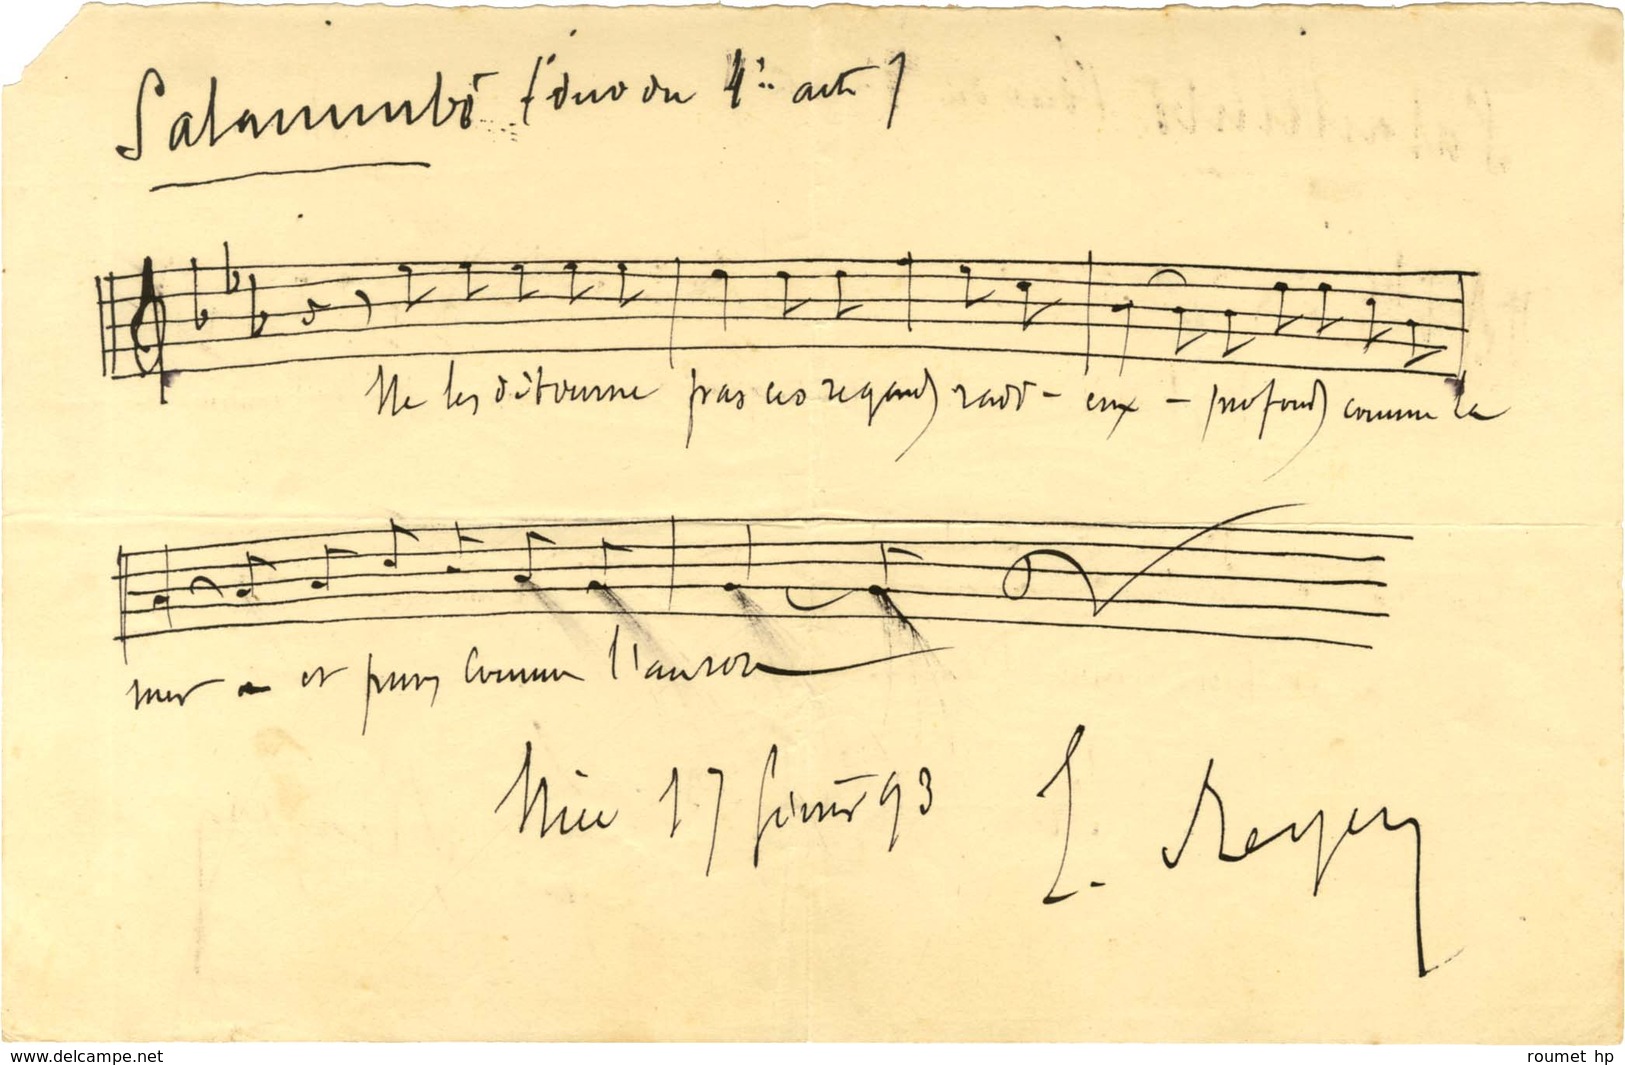 Salammbô (duo du 4e acte)
Ne les détourne pas ces regards radi - eux - profonds comme la
mer - et purs comme l'aurore
Nice 17 février 93 E. Reyer
www.delcampe.net
roumet hp